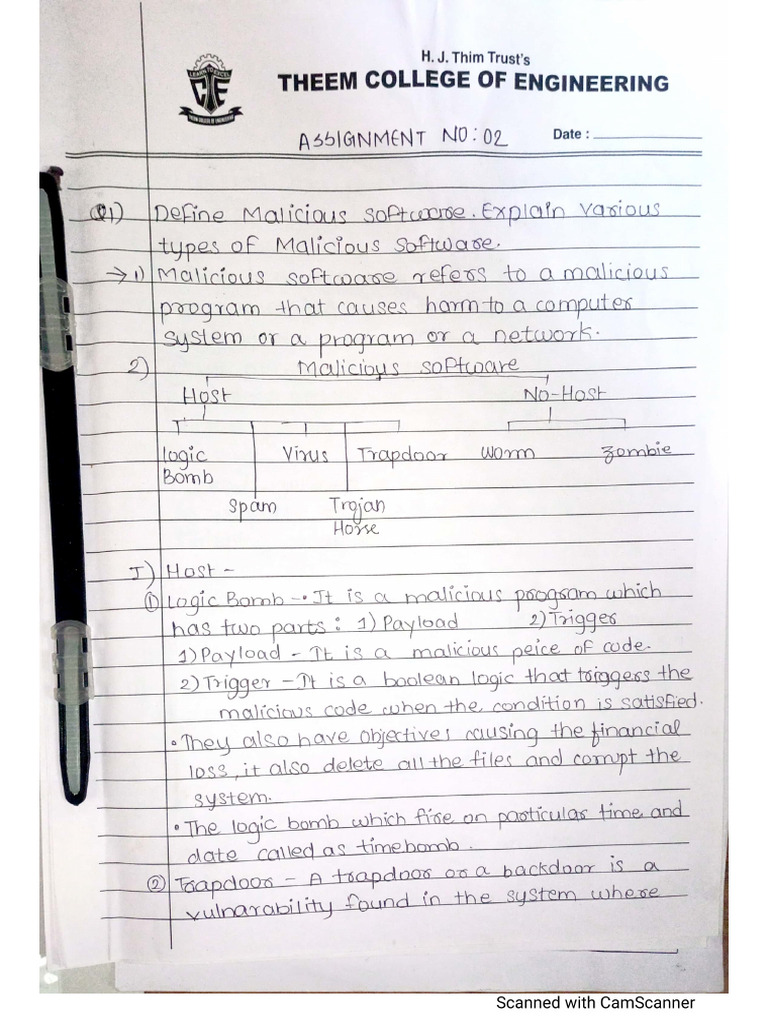 H. J. Thim Trust's
THEEM COLLEGE OF ENGINEERING
LEARN TO EXCEL
THEEM COLLEGE OF ENGINEERING
ASSIGNMENT NO: 02 Date :
Q1) Define Malicious software. Explain various
types of Malicious Software.
→ 1) Malicious software refers to a malicious
program that causes harm to a computer
system or a program or a network.
2) Malicious software
Host No-Host
Logic Virus Trapdoor Worm Zombie
Bomb
Spam Trojan
Horse
I) Host -
① Logic Bomb - • It is a malicious program which
has two parts: 1) Payload 2) Trigger
1) Payload - It is a malicious peice of code.
2) Trigger - It is a boolean logic that triggers the
malicious code when the condition is satisfied.
• They also have objectives causing the financial
loss, it also delete all the files and corrupt the
system.
• The logic bomb which fire on particular time and
date called as timebomb.
② Trapdoor - A trapdoor or a backdoor is a
vulnarability found in the system where
Scanned with CamScanner